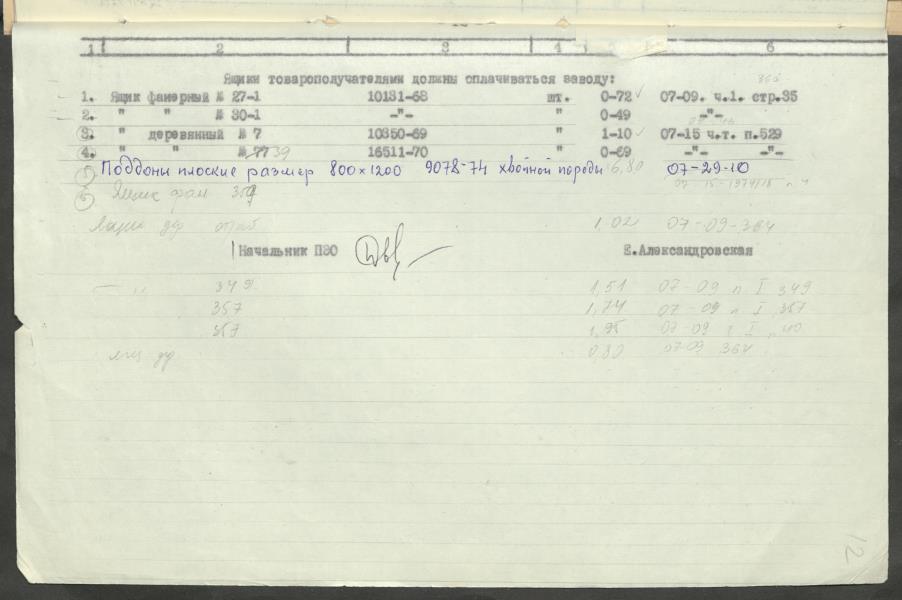 1 2 3 4 6
Ящики товарополучателями должны оплачиваться заводу:
1. Ящик фанерный № 27-1 10131-68 шт. 0-72 ✓ 07-09. ч.1. стр.35
2. " " № 30-1 -"- " 0-49 -"-
3. " деревянный № 7 10350-69 " 1-10 ✓ 07-15 ч.т. п.529
4. " " № 77 39 16511-70 " 0-69 -"- -"-
5 Поддоны плоские размер 800×1200 9078-74 хвойной породы 6,80 07-29-10
6 Ящик фан
Ящик др 1,02 07-09-364
Начальник ПЭО Е.Александровская
— " 349 1,51 07-09 п I 349
357 1,74 07-09 п I 357
357 1,95 07-09 I 40
ящ др 0,80 07-09 364
12